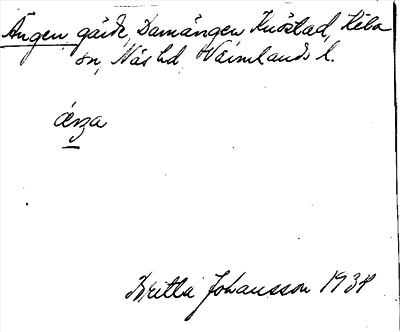 Ängen, gärde, Damängen Knöstad, Kila
sn, Näs hd Värmlands l.
änga
Britta Johansson 1938